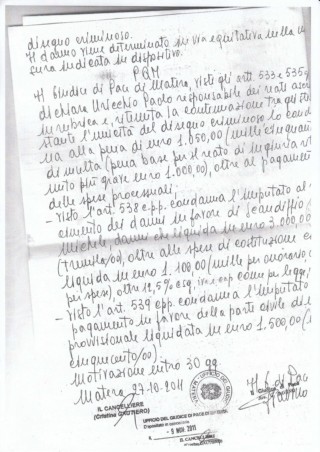 disegno criminoso.
Il danno viene determinato in via equitativa nella mi
sura indicata in dispositivo.
PQM
Il Giudice di Pace di Matera, visti gli artt. 533 e 535 c
dichiara Paolo responsabile dei reati ascr
in rubrica e, ritenuta la continuazione tra gli stes
stante l'unicità del disegno criminoso, lo cond
na alla pena di euro 1.050,00 (millecinquan
di multa (pena base per il reato di ingiuria rit
nuto più grave euro 1.000,00), oltre al pagament
delle spese processuali;
- visto l'art. 538 c.p.p. condanna l'imputato al
cimento dei danni in favore di
Michele, danni che liquida in euro 3.000,00
(tremila/00), oltre alle spese di costituzione c
liquida in euro 1.100,00 (mille per onorario, c
per spese), oltre 12,5% iva e cap come per legge
- visto l'art. 539 c.p.p. condanna l'imputato
pagamento in favore della parte civile di
provvisionale liquidata in euro 1.500,00 (m
cinquecento/00).
Motivazione entro 30 gg.
Matera 27-10-2011
IL CANCELLIERE
(Cristina GAUTIERO)
UFFICIO DEL GIUDICE DI PACE DI
Depositato in cancelleria
- 9 NOV. 2011
IL CANCELLIERE